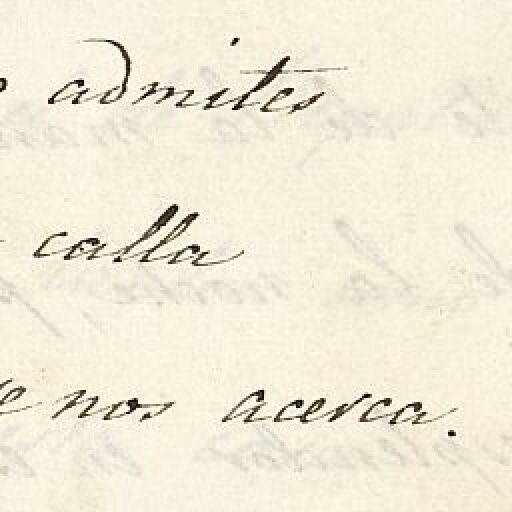 admites
calla
nos acerca.